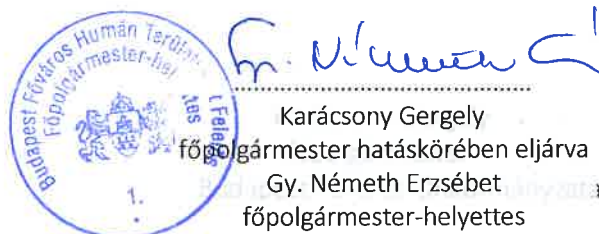 Budapest Főváros Humán Terület Felelős
Főpolgármester-helyettes
1.
Gy. Németh E
Karácsony Gergely
főpolgármester hatáskörében eljárva
Gy. Németh Erzsébet
főpolgármester-helyettes